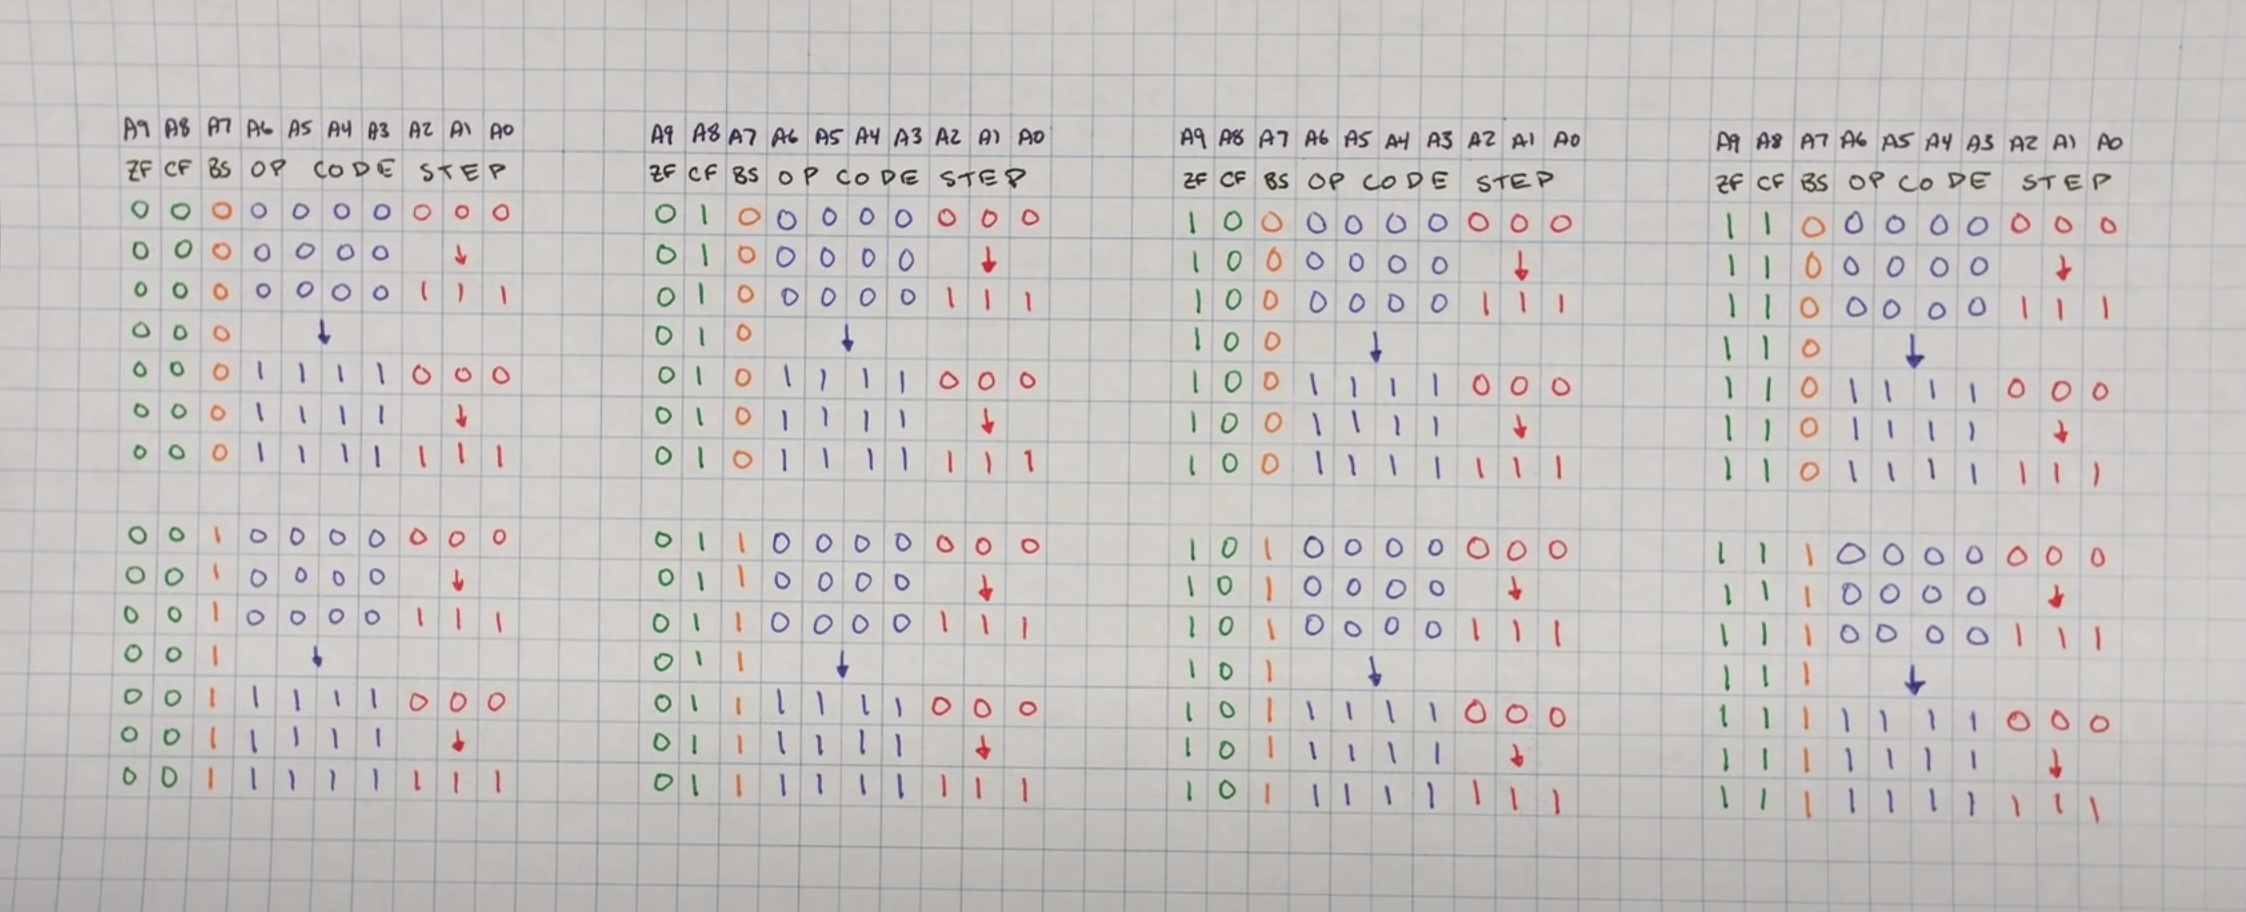 A9 A8 A7 A6 A5 A4 A3 A2 A1 A0
ZF CF BS OP CODE STEP
0 0 0 0 0 0 0 0 0 0
0 0 0 0 0 0 0 ↓
0 0 0 0 0 0 0 1 1 1
0 0 0 ↓
0 0 0 1 1 1 1 0 0 0
0 0 0 1 1 1 1 ↓
0 0 0 1 1 1 1 1 1 1
0 0 1 0 0 0 0 0 0 0
0 0 1 0 0 0 0 ↓
0 0 1 0 0 0 0 1 1 1
0 0 1 ↓
0 0 1 1 1 1 1 0 0 0
0 0 1 1 1 1 1 ↓
0 0 1 1 1 1 1 1 1 1
A9 A8 A7 A6 A5 A4 A3 A2 A1 A0
ZF CF BS OP CODE STEP
0 1 0 0 0 0 0 0 0 0
0 1 0 0 0 0 0 ↓
0 1 0 0 0 0 0 1 1 1
0 1 0 ↓
0 1 0 1 1 1 1 0 0 0
0 1 0 1 1 1 1 ↓
0 1 0 1 1 1 1 1 1 1
0 1 1 0 0 0 0 0 0 0
0 1 1 0 0 0 0 ↓
0 1 1 0 0 0 0 1 1 1
0 1 1 ↓
0 1 1 1 1 1 1 0 0 0
0 1 1 1 1 1 1 ↓
0 1 1 1 1 1 1 1 1 1
A9 A8 A7 A6 A5 A4 A3 A2 A1 A0
ZF CF BS OP CODE STEP
1 0 0 0 0 0 0 0 0 0
1 0 0 0 0 0 0 ↓
1 0 0 0 0 0 0 1 1 1
1 0 0 ↓
1 0 0 1 1 1 1 0 0 0
1 0 0 1 1 1 1 ↓
1 0 0 1 1 1 1 1 1 1
1 0 1 0 0 0 0 0 0 0
1 0 1 0 0 0 0 ↓
1 0 1 0 0 0 0 1 1 1
1 0 1 ↓
1 0 1 1 1 1 1 0 0 0
1 0 1 1 1 1 1 ↓
1 0 1 1 1 1 1 1 1 1
A9 A8 A7 A6 A5 A4 A3 A2 A1 A0
ZF CF BS OP CODE STEP
1 1 0 0 0 0 0 0 0 0
1 1 0 0 0 0 0 ↓
1 1 0 0 0 0 0 1 1 1
1 1 0 ↓
1 1 0 1 1 1 1 0 0 0
1 1 0 1 1 1 1 ↓
1 1 0 1 1 1 1 1 1 1
1 1 1 0 0 0 0 0 0 0
1 1 1 0 0 0 0 ↓
1 1 1 0 0 0 0 1 1 1
1 1 1 ↓
1 1 1 1 1 1 1 0 0 0
1 1 1 1 1 1 1 ↓
1 1 1 1 1 1 1 1 1 1